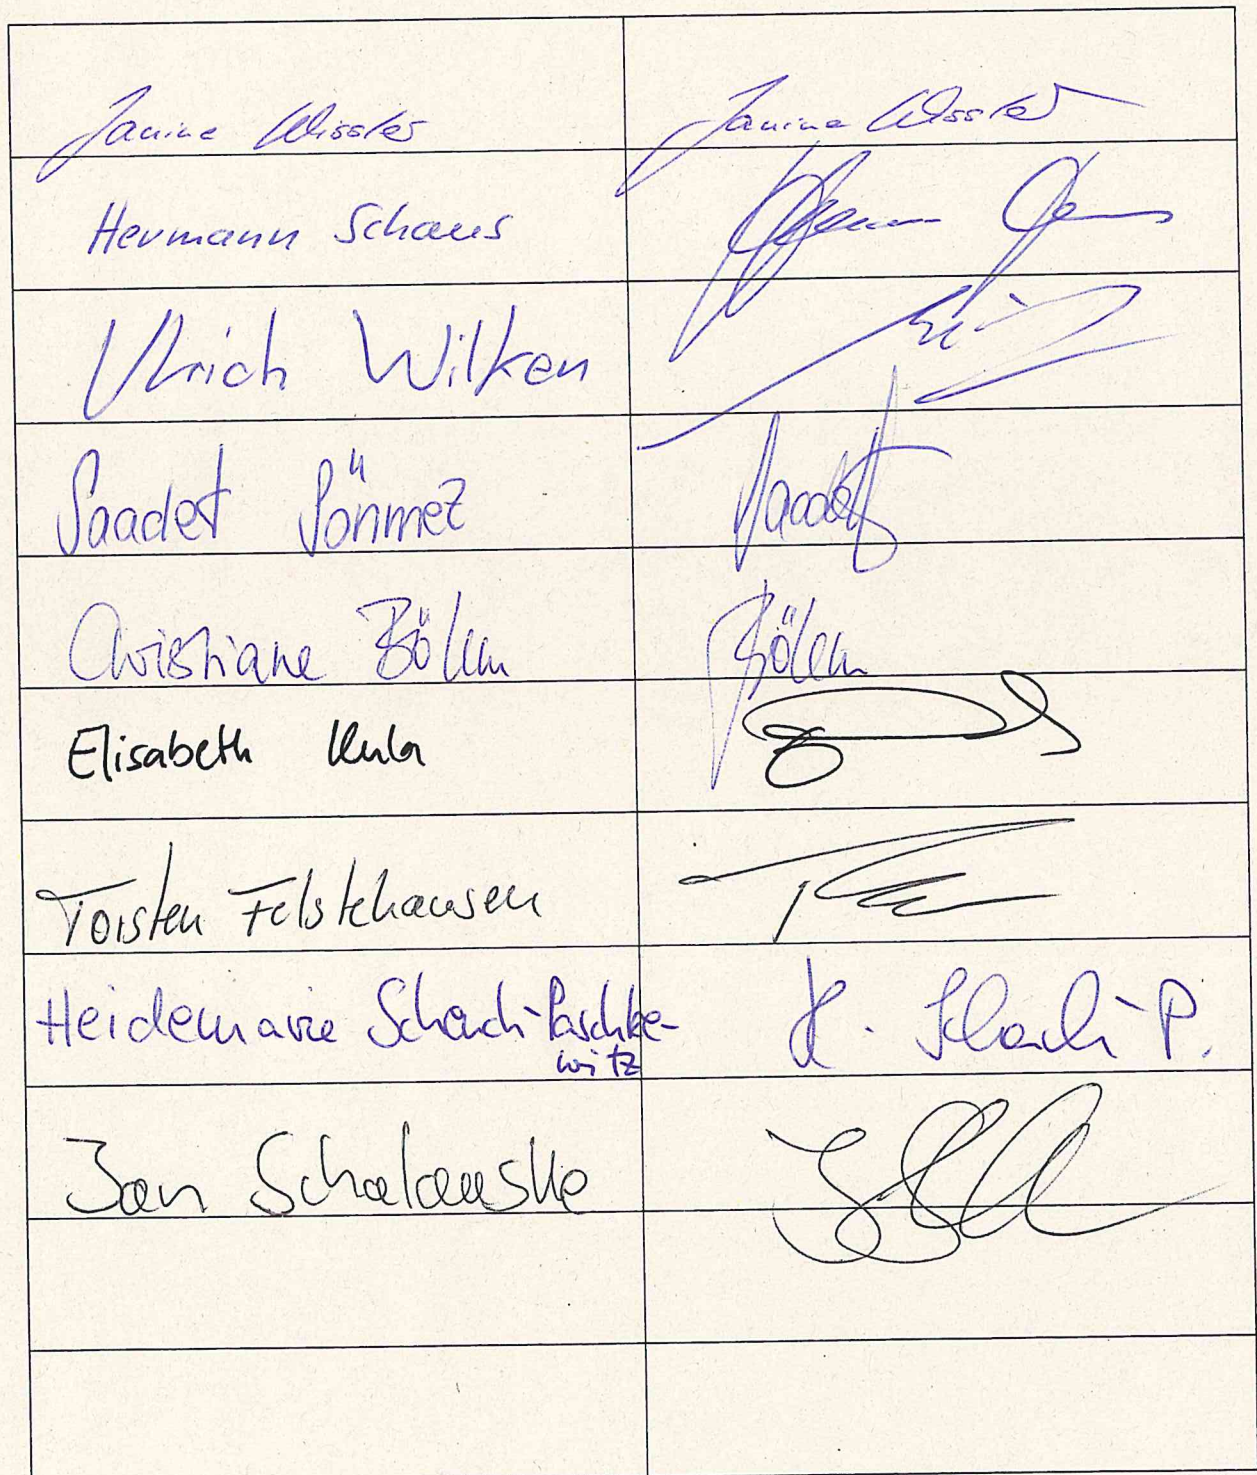 Janine Wissler Janine Wissler
Hermann Schaus
Ulrich Wilken
Saadet Sönmez Saadet
Christiane Böhm Böhm
Elisabeth Kula
Torsten Felstehausen
Heidemarie Scheuch-Paschke- H. Scheuch-P.
witz
Jan Schalauske